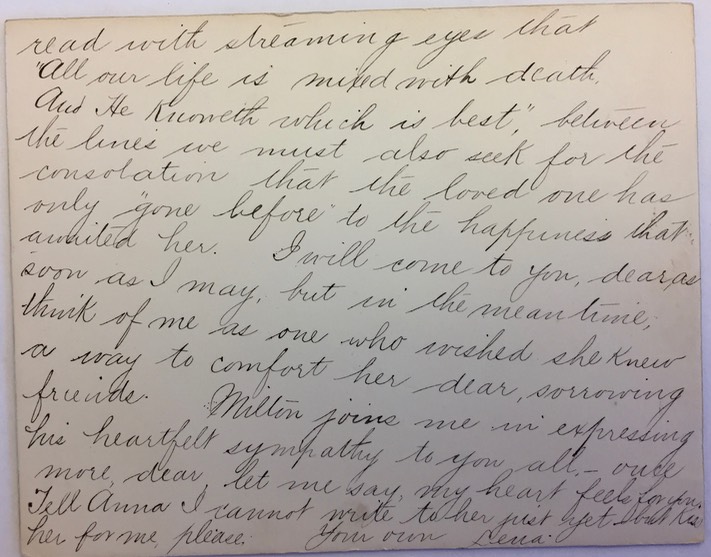 read with streaming eyes that
"All our life is mixed with death,
And He Knoweth which is best," between
the lines we must also seek for the
consolation that the loved one has
only "gone before" to the happiness that
awaited her. I will come to you, dear, as
soon as I may, but in the meantime,
think of me as one who wished she knew
a way to comfort her dear, sorrowing
friends. Milton joins me in expressing
his heartfelt sympathy to you all, – once
more, dear, let me say, my heart feels for you.
Tell Anna I cannot write to her just yet – but Kiss
her for me, please. Your own Lena.